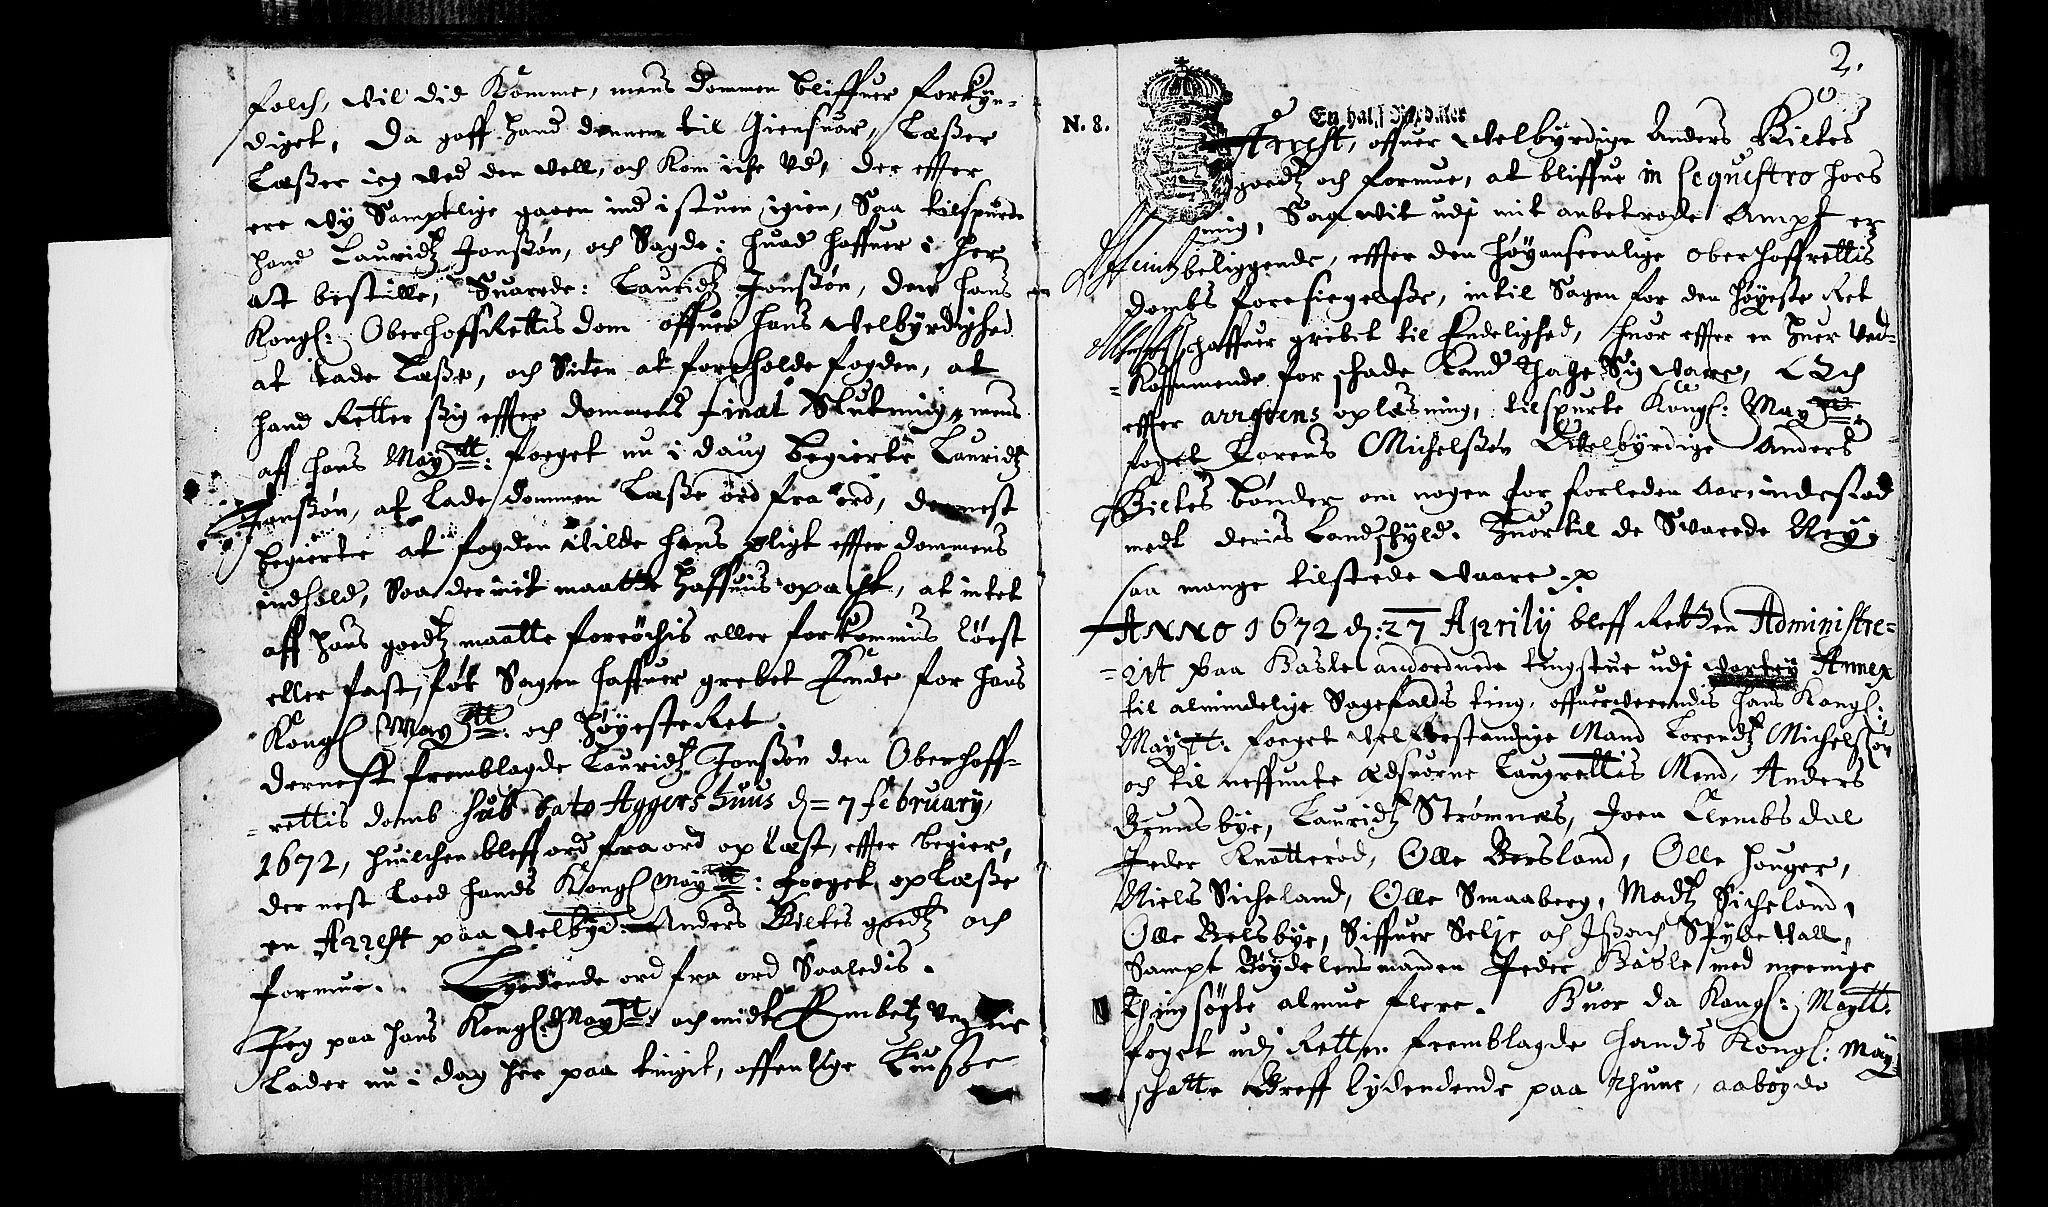 folch, vil did Komme, mens dommen bliffuer forkÿn-
diget, Da gaff hand dennem til Giensuar, Læsser
Læsser ieg ved den vell, och Kom iche ud, der effter
ere wÿ Samptlige gaaen ind i stuen igien, Saa tilspurte
hand Lauridtz Jonssøn, och Sagde: huad haffuer i her
at bestille, Suarede: Lauridtz Jonssøn, den hans
Kongl: OberhoffRettis dom offuer hans velbÿrdighed
at lade Læsse, och Siden at foreholde fogden, at
hand Retter sig effter dommens final Slutning, mens
aff hans Maÿtt: foeget nu i daug begierte Lauridtz
Jonssøn, at lade dommen Læsse ord fra ord, dernest
begierte at fogden vilde hans pligt effter dommens
indhold, Saa der mit maatte haffuis opacht, at intet
aff hans goedtz maatte forrøchis eller forkommis løest
eller fast, før Sagen haffuer grebet Ende for hans
Kongl Maÿtt: och HøÿesteRet.
dernest fremblagde Lauridtz Jonssøn den Oberhoff-
-rettis domb sub dato Aggers Huus d= 7 february,
1672, huilchen bleff ord fra ord op læst, effter begier,
der nest loed hands Kongl Maÿtt: foeget oplæsse
en Arrest paa velbÿd: Anders Biltes goedtz och
formue. Lydende ord fra ord Saaledis.
Jeg paa hans Kongl: Maÿtt: och midt Embetz vegne
Lader nu i dag her paa tingit, offentlige Liusse
2.
N. 8.
En half Rixdaler
Arrest, offuer velbÿrdige Anders Biltes
goedtz och formue, at bliffue in sequestro hoes
mig, Saa wit udj mit anbetrode Ampt er
beliggende, effter den høÿanseenlige oberhoffrettis
dombs foresigelsse, intil Sagen for den høÿeste Ret
haffuer grebet til Endelighed, huor effter en huer ved-
-kommende for schade kand tage Sig vare, Och
effter arrestens oplæsning, tilspurte Kongl: Maÿtt:
foget Lorens Michelssøn velbÿrdige Anders
Biltes bønder om nogen for forleden aar, indestod
medt deris Landschÿld. Huortil de Svarede Neÿ,
saa mange tilstede vaare.
ANNO 1672 d: 27 Aprilÿ bleff Retten Administre-
-rit paa Basle andordnede tingstue udj Annex
til almindelige Sagefalds ting, offueruerendis hans Kongl:
Maÿtt: foeget vel Forstandige Mand Lorendtz Michelssøn
och til neffnte Edsuorne Laugrettis Mend, Anders
Brunsbÿe, Lauridtz Strømnæs, Joen Clembsdal
Peder Knatterød, Olle Borsland, Olle Houger,
Niels Sicheland, Olle Smaaberg, Madtz Sicheland,
Olle Belsbÿe, Siffuer Selje och Issach Spÿdevall,
Sampt Bøÿdelensmanden Peder Basle med meenige
Thingsøgte almue flere. Huor da Kongl: Maÿtt:
foget udj Retten fremblagde hands Kongl: Maÿ
schatte breff lÿdendende paa Thune, aabÿgde